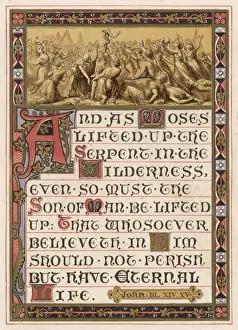 AND AS MOSES
LIFTED UP THE
SERPENT IN THE
WILDERNESS,
EVEN SO MUST THE
SON OF MAN BE LIFTED
UP: THAT WHOSOEVER
BELIEVETH IN HIM
SHOULD NOT PERISH
BUT HAVE ETERNAL
LIFE. John III, XIV, XV.